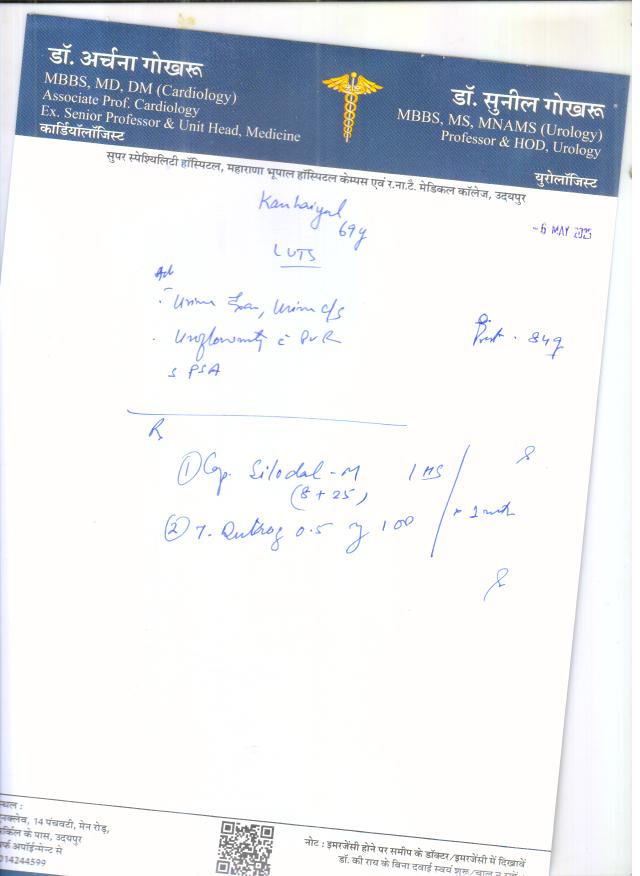 डॉ. अर्चना गोखरू
MBBS, MD, DM (Cardiology)
Associate Prof. Cardiology
Ex. Senior Professor & Unit Head, Medicine
कार्डियॉलॉजिस्ट
डॉ. सुनील गोखरू
MBBS, MS, MNAMS (Urology)
Professor & HOD, Urology
युरोलॉजिस्ट
सुपर स्पेश्यिलिटी हॉस्पिटल, महाराणा भूपाल हॉस्पिटल केम्पस एवं र.ना.टै. मेडिकल कॉलेज, उदयपुर
-6 MAY 2025
69y
LUTS
Adv
Urine, Urine c/s
Uroflowmetry c PVR
S PSA
Prost. 84g
Rx
① Cap. Silodal-M 1 HS
(8 + 25)
② T. 0.5 mg 1 OD
थल :
14 पंचवटी, मेन रोड़,
के पास, उदयपुर
अपॉईन्मेन्ट से
014244599
नोट : इमरजेंसी होने पर समीप के डॉक्टर/इमरजेंसी में दिखावें
डॉ. की राय के बिना दवाई स्वयं शुरू/चालू न